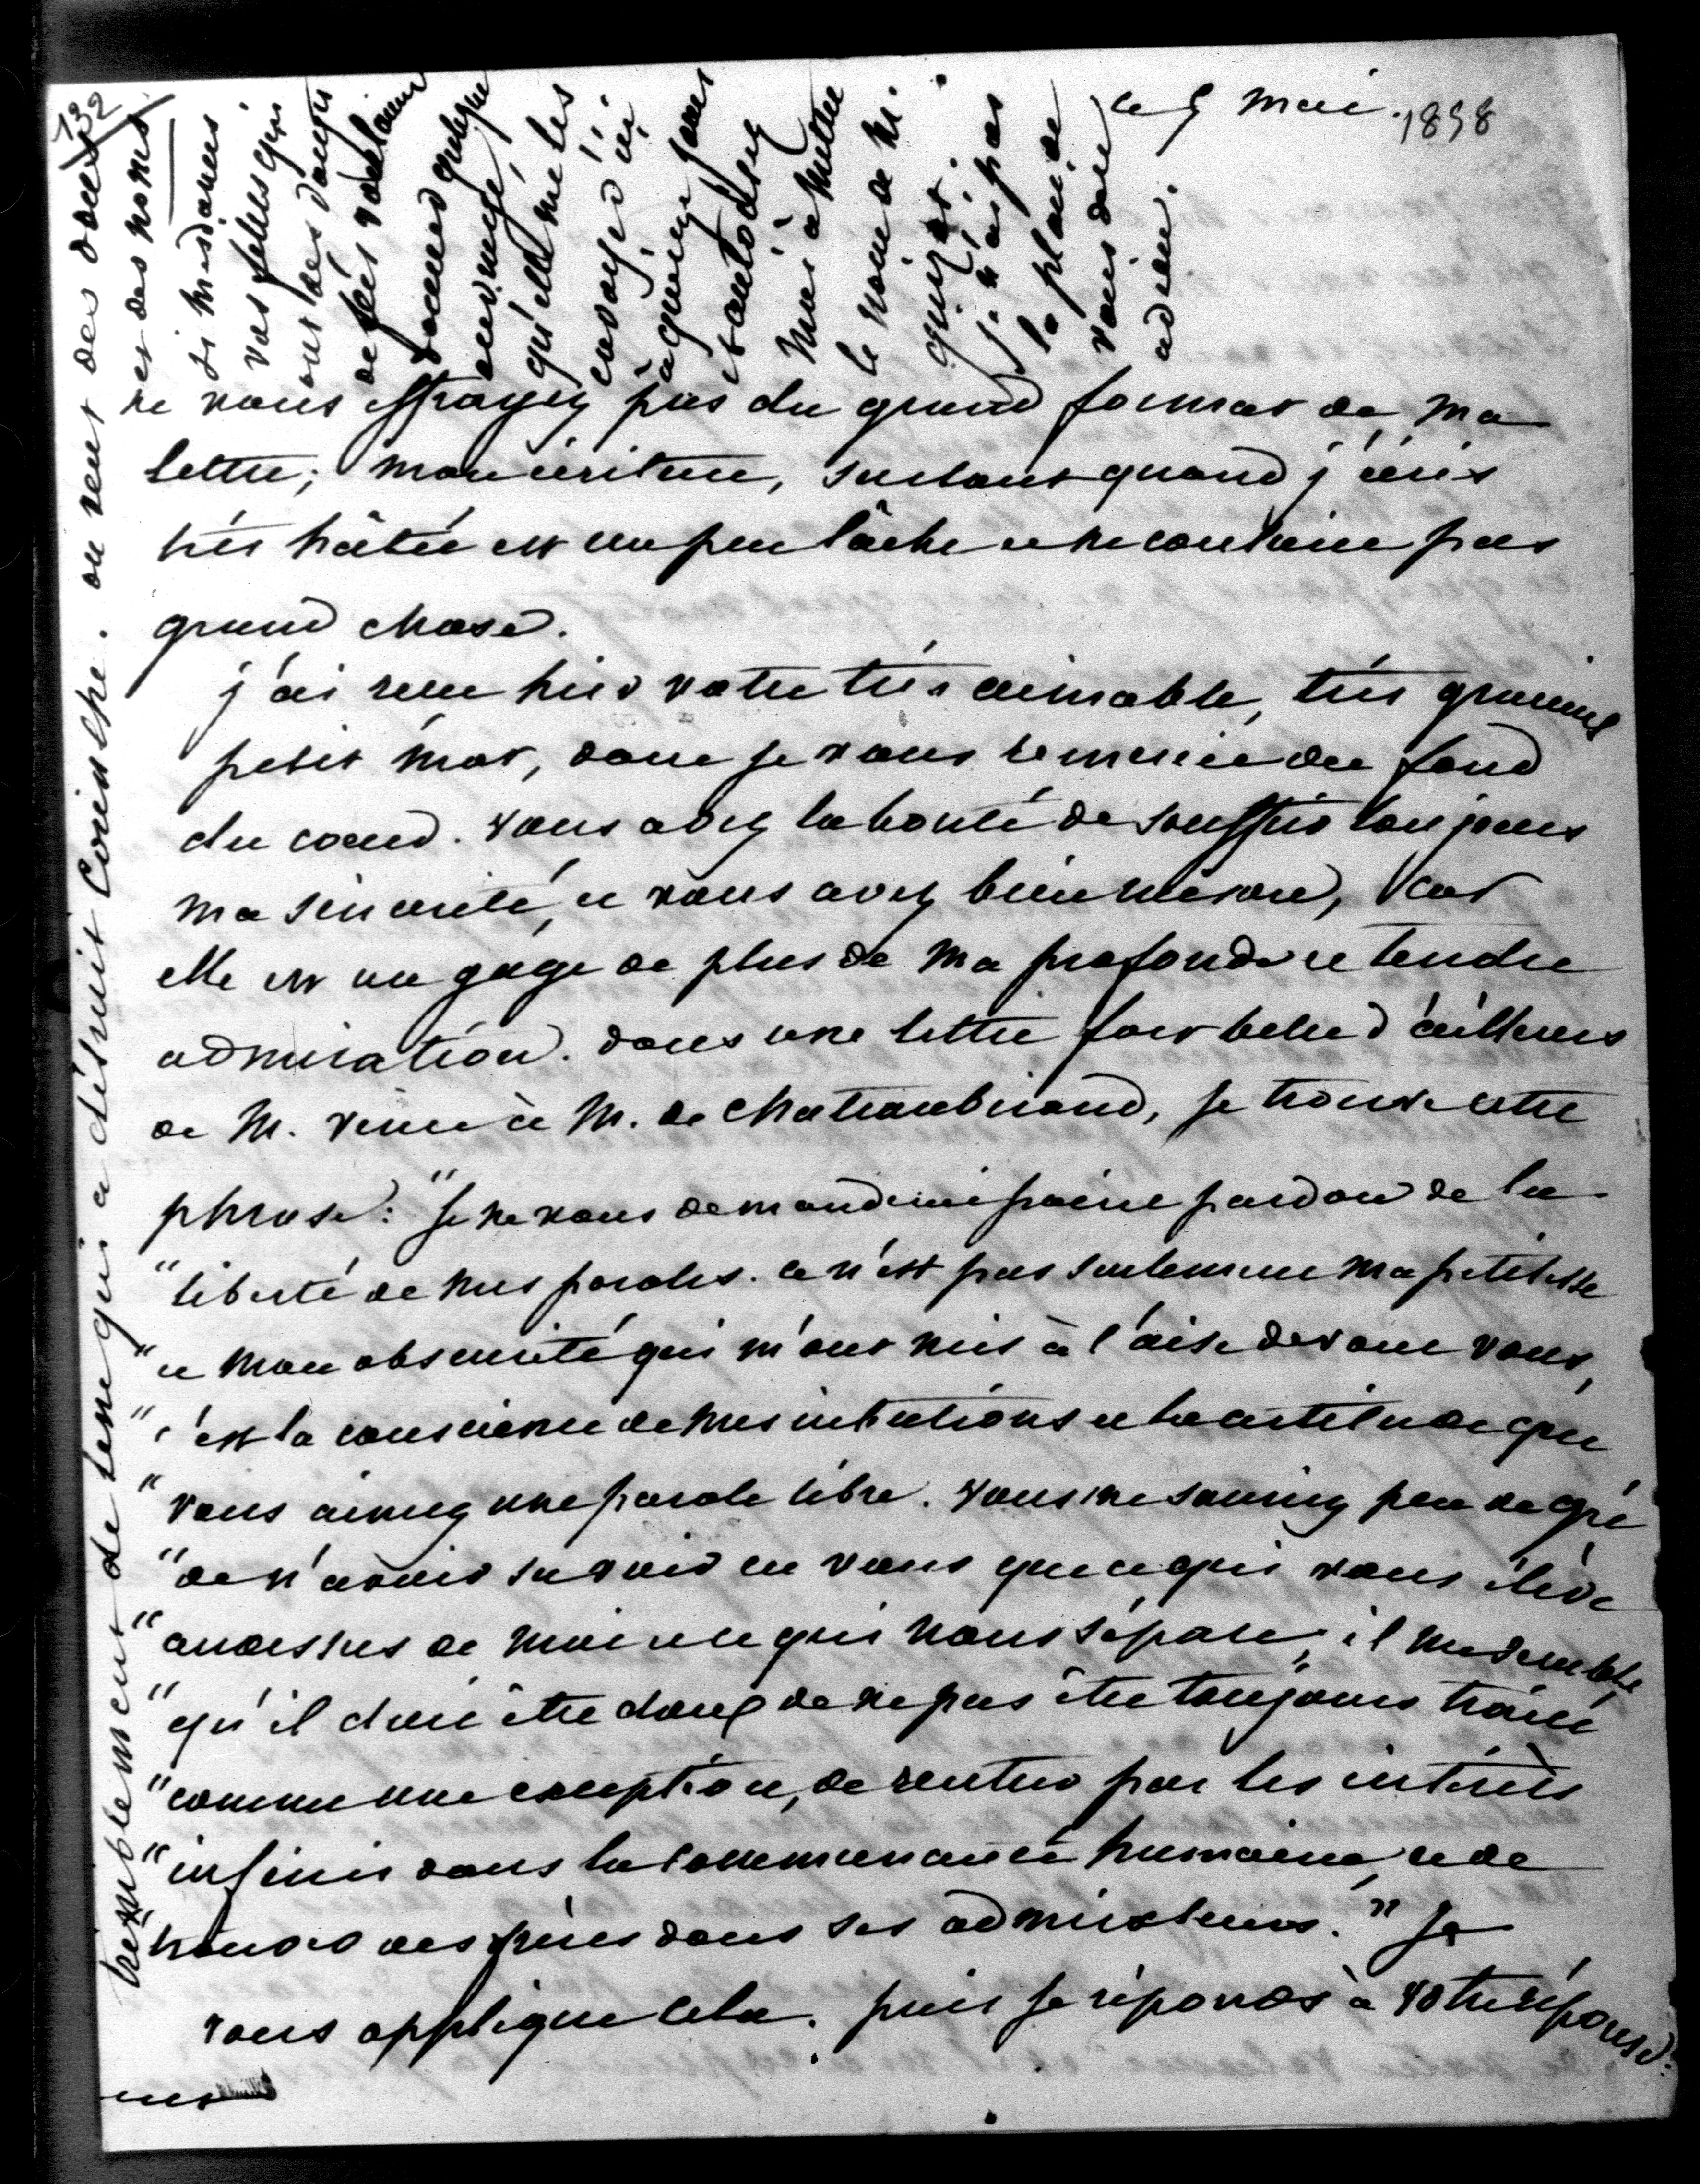 132
ce 9 Mai. 1858
ne vous effrayez pas du grand format de ma
lettre; mon écriture, surtout quand j'écris
très hâtée est un peu lâche et ne contient pas
grand chose.
j'ai reçu hier votre très aimable, très gracieux
petit mot, dont je vous remercie du fond
du coeur. vous avez la bonté de souffrir toujours
ma sincérité, et vous avez bien raison, car
elle est un gage de plus de ma profonde et tendre
admiration. dans une lettre fort belle d'ailleurs
de M. Vinet à M. de Chateaubriand, je trouve cette
phrase: "Je ne vous demande point pardon de la
"liberté de mes paroles. ce n'est pas seulement ma petitesse
"et mon obscurité qui m'ont mis à l'aise devant vous,
"c'est la conscience de mes intentions et la certitude que
"vous aimez une parole libre. vous me sauriez peu de gré
"de n'avoir su voir en vous que ce qui vous élève
"audessus de moi et ce qui nous sépare; il me semble
"qu'il doit être doux de ne pas être toujours traité
"comme une exception, de rentrer par les intérêts
"infinis dans la communauté humaine, et de
"trouver des frères dans ses admirateurs." Je
vous applique cela. puis je réponds à votre réponse.
terriblement de tems qui a détruit Corinthe. on veut des
et des noms
si mesdames
vos filles qui
ont des doigts
de fées voulaient
donner quelque
ouvrage,
qu'elles me les
envoyent ici
et autorisez
moi à mettre
le nom de
j'n'ai pas
la place de
vous dire
adieu.